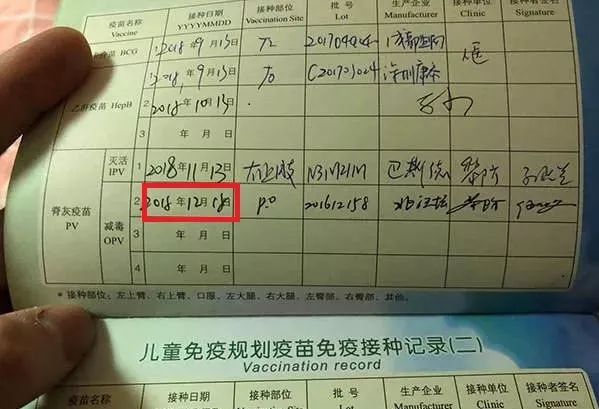 疫苗名称 接种日期 接种部位 批号 生产企业 接种单位 接种者签名
Vaccine YYYYMMDD Vaccination Site Lot Manufacturer Clinic Signature
苗 BCG 2018年9月13日
2018年9月13日 C201703024 深圳康泰
乙肝疫苗 HepB 2 2018年10月13日
3 年 月 日
脊灰疫苗 PV
灭活 IPV 1 2018年11月13日 左上肢 N3M21M 巴斯德
2 2018年12月18日 po 201612158
减毒 OPV 3 年 月 日
4 年 月 日
* 接种部位：左上臂、右上臂、口服、左大腿、右大腿、左臀部、右臀部、其他。
儿童免疫规划疫苗免疫接种记录(二)
Vaccination record
疫苗名称 接种日期 接种部位 批号 生产企业 接种单位 接种者签名
Vaccine YYYYMMDD Vaccination Site Lot Manufacturer Clinic Signature